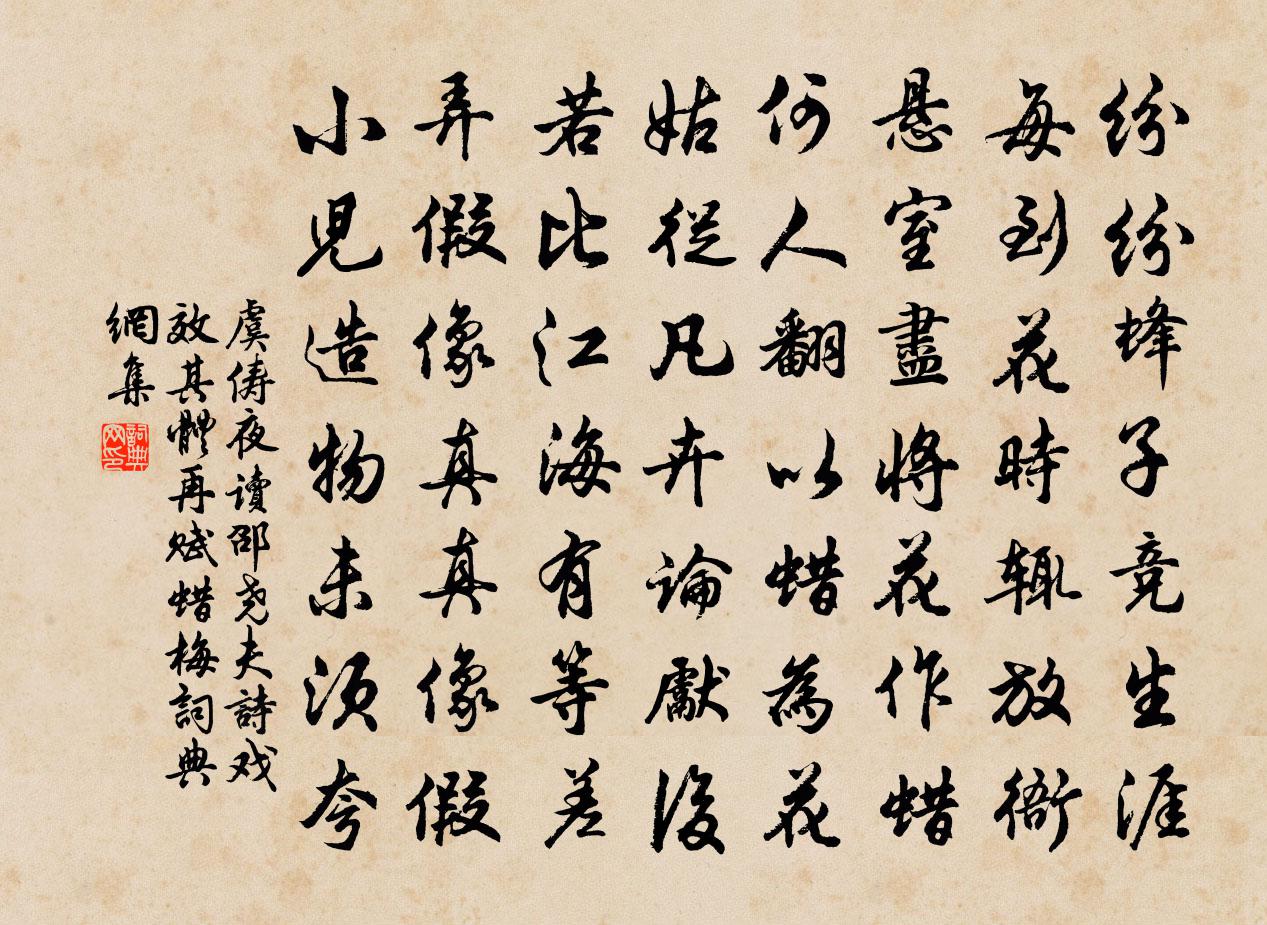 紛紛蜂子竞生涯
每到花時辄放衙
悬室盡將花作蜡
何人翻以蜡為花
姑從凡卉論獻後
若比江海有等差
弄假像真真像假
小兒造物未須夸
虞俦夜讀邵尧夫詩戏
效其體再赋蜡梅詞典
網集
詞典网印